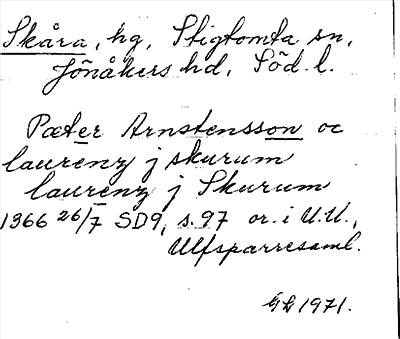 Skåra, hg, Stigtomta sn,
Jönåkers hd, Söd. l.
Pæter Arnstensson oc
laurenz j skurum
laurenz j Skurum
1366 26/7 SD9, s.97 or. i U.U.,
Ulfsparresaml.
GL 1971.